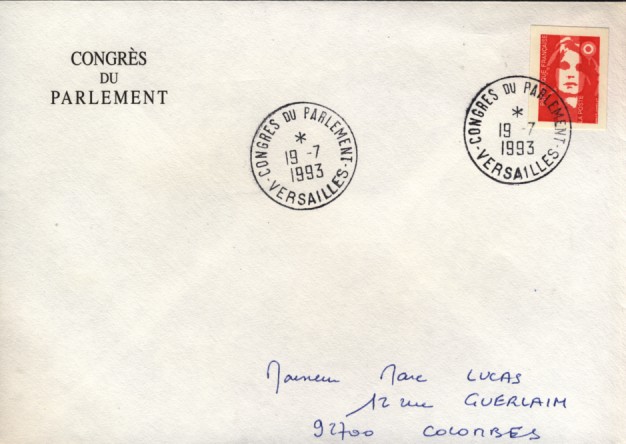 CONGRÈS
DU
PARLEMENT
CONGRES DU PARLEMENT
*
19 -7
1993
- VERSAILLES -
RÉPUBLIQUE FRANÇAISE
LA POSTE
CONGRES DU PARLEMENT
*
19 -7
1993
- VERSAILLES -
Monsieur Marc LUCAS
12 rue GUERLAIM
92700 COLOMBES